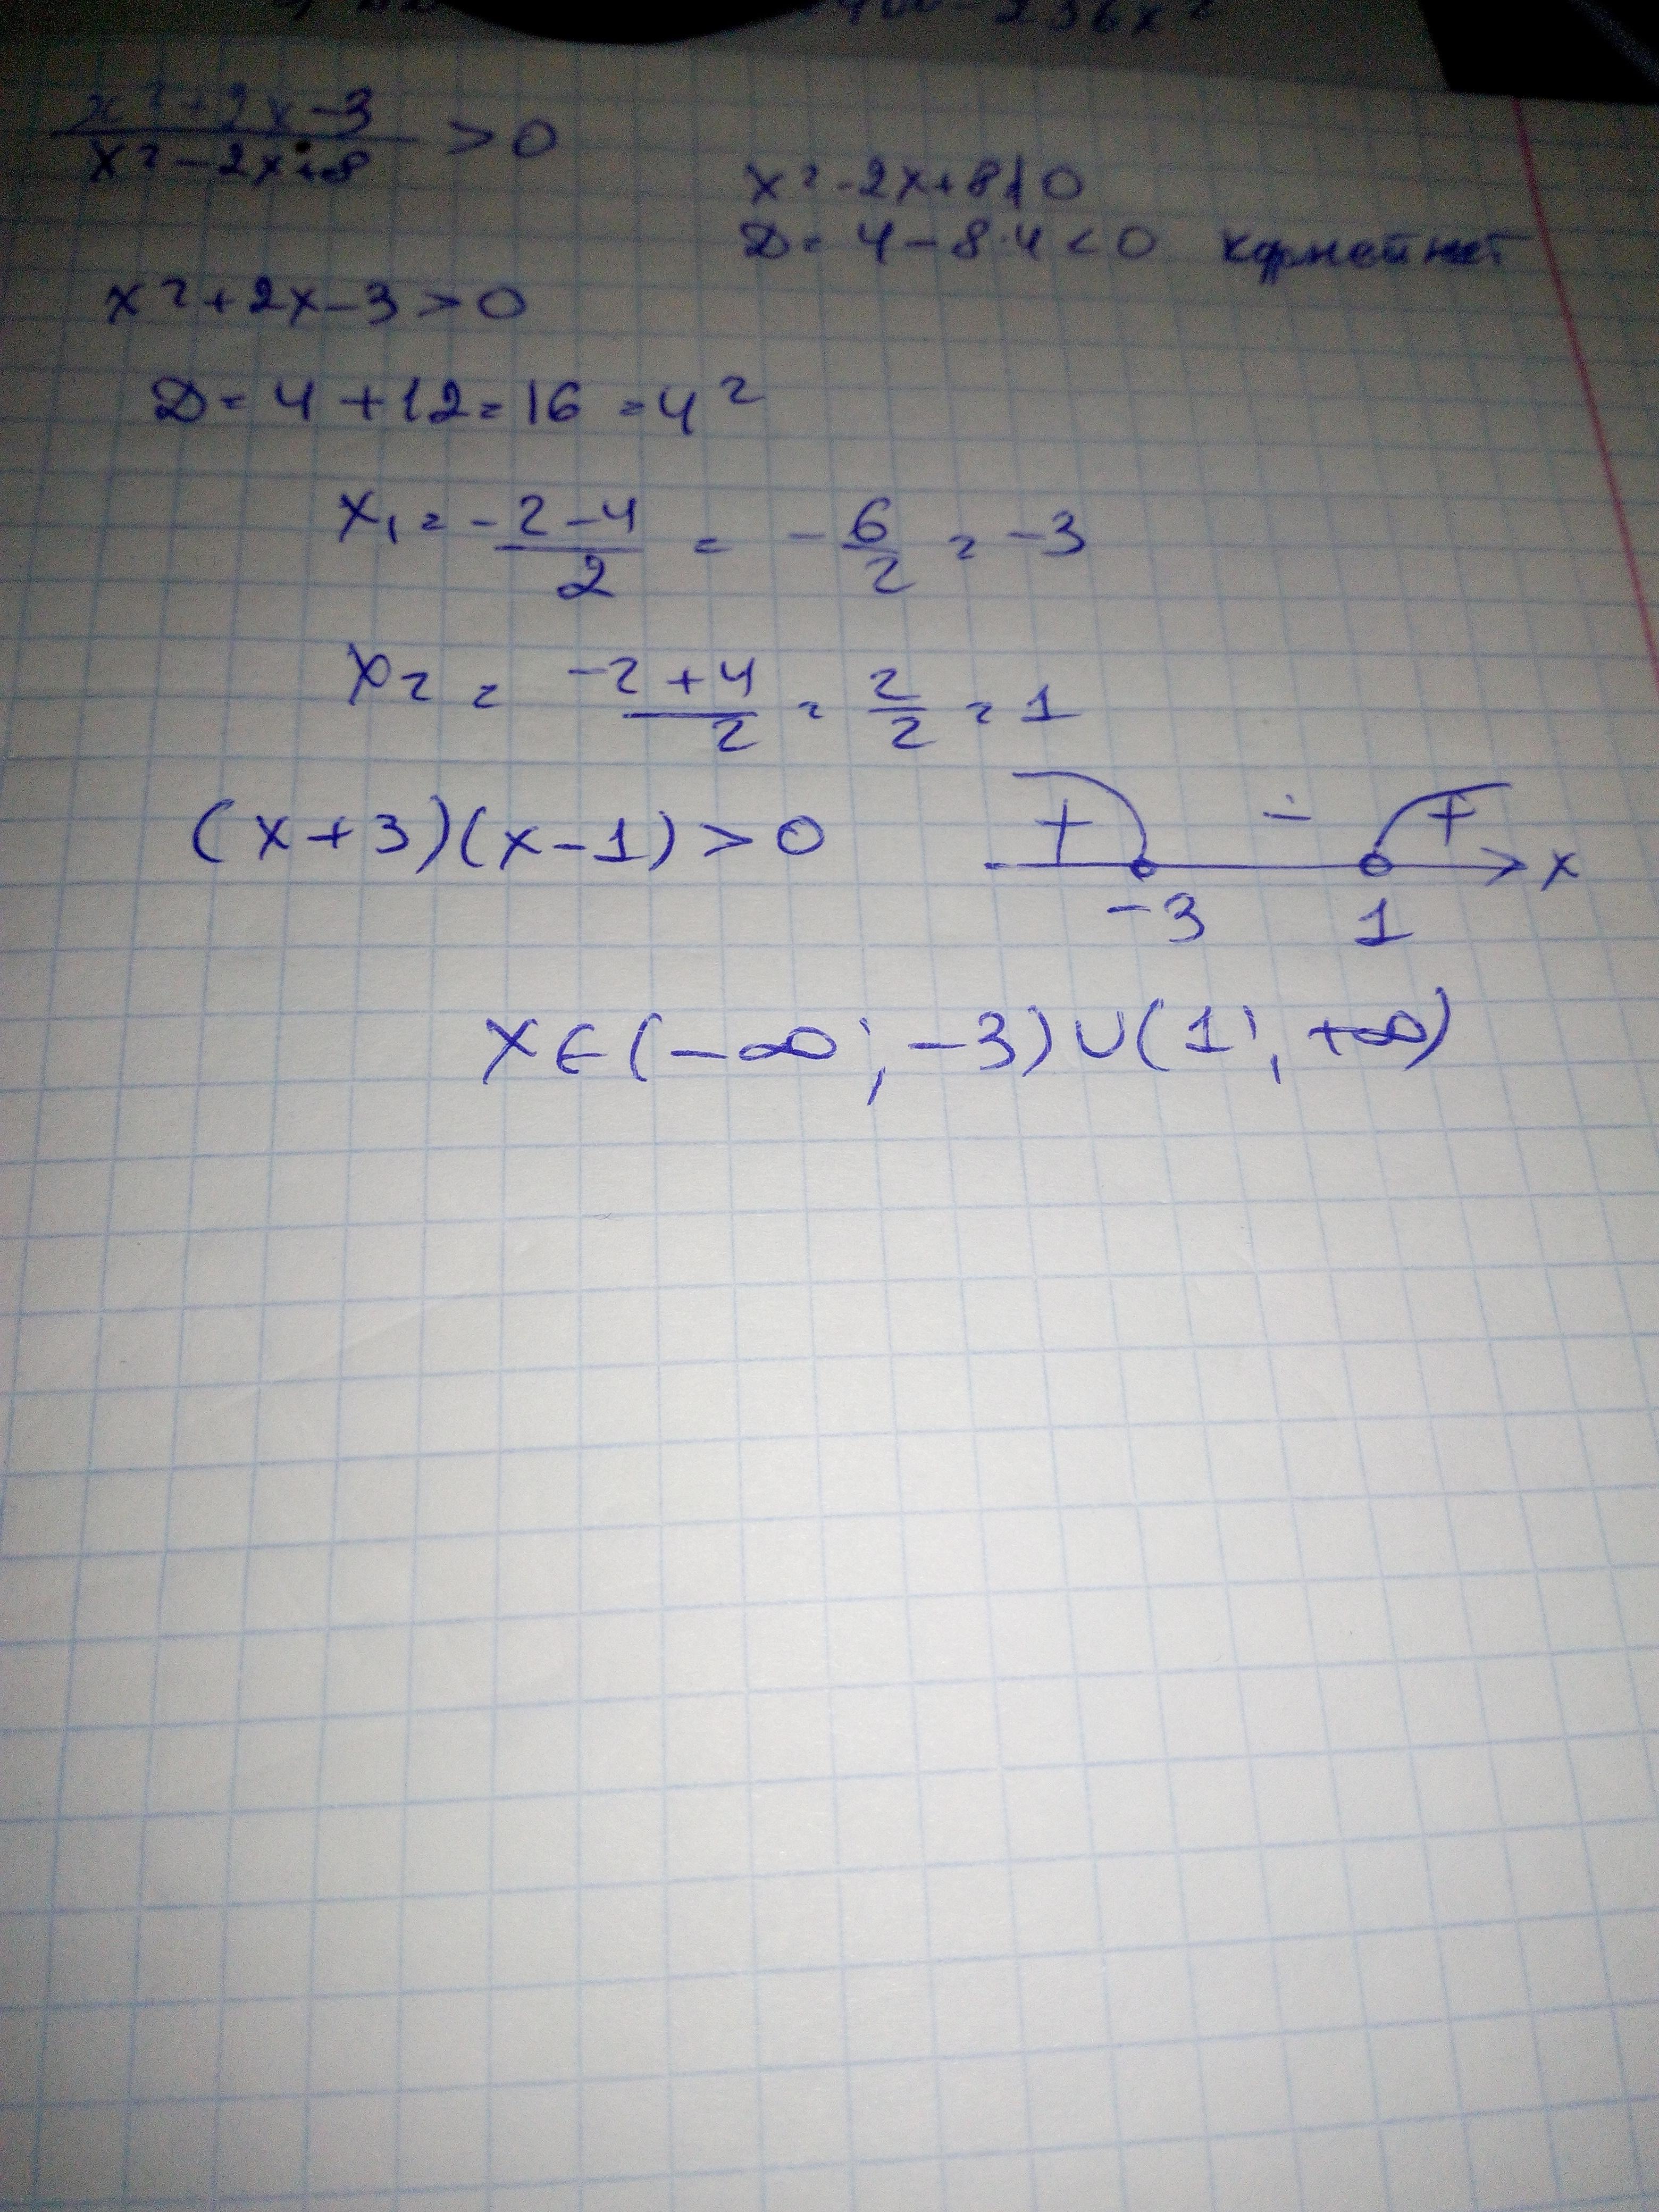 x²+2x-3
─────── > 0
x²-2x+8
x²-2x+8≠0
D= 4-8·4<0 корней нет
x²+2x-3>0
D= 4+12=16=4²
x₁= -2-4/2 = -6/2 = -3
x₂ = -2+4/2 = 2/2 = 1
(x+3)(x-1)>0
+ - + x
-3 1
x∈(-∞; -3)∪(1; +∞)